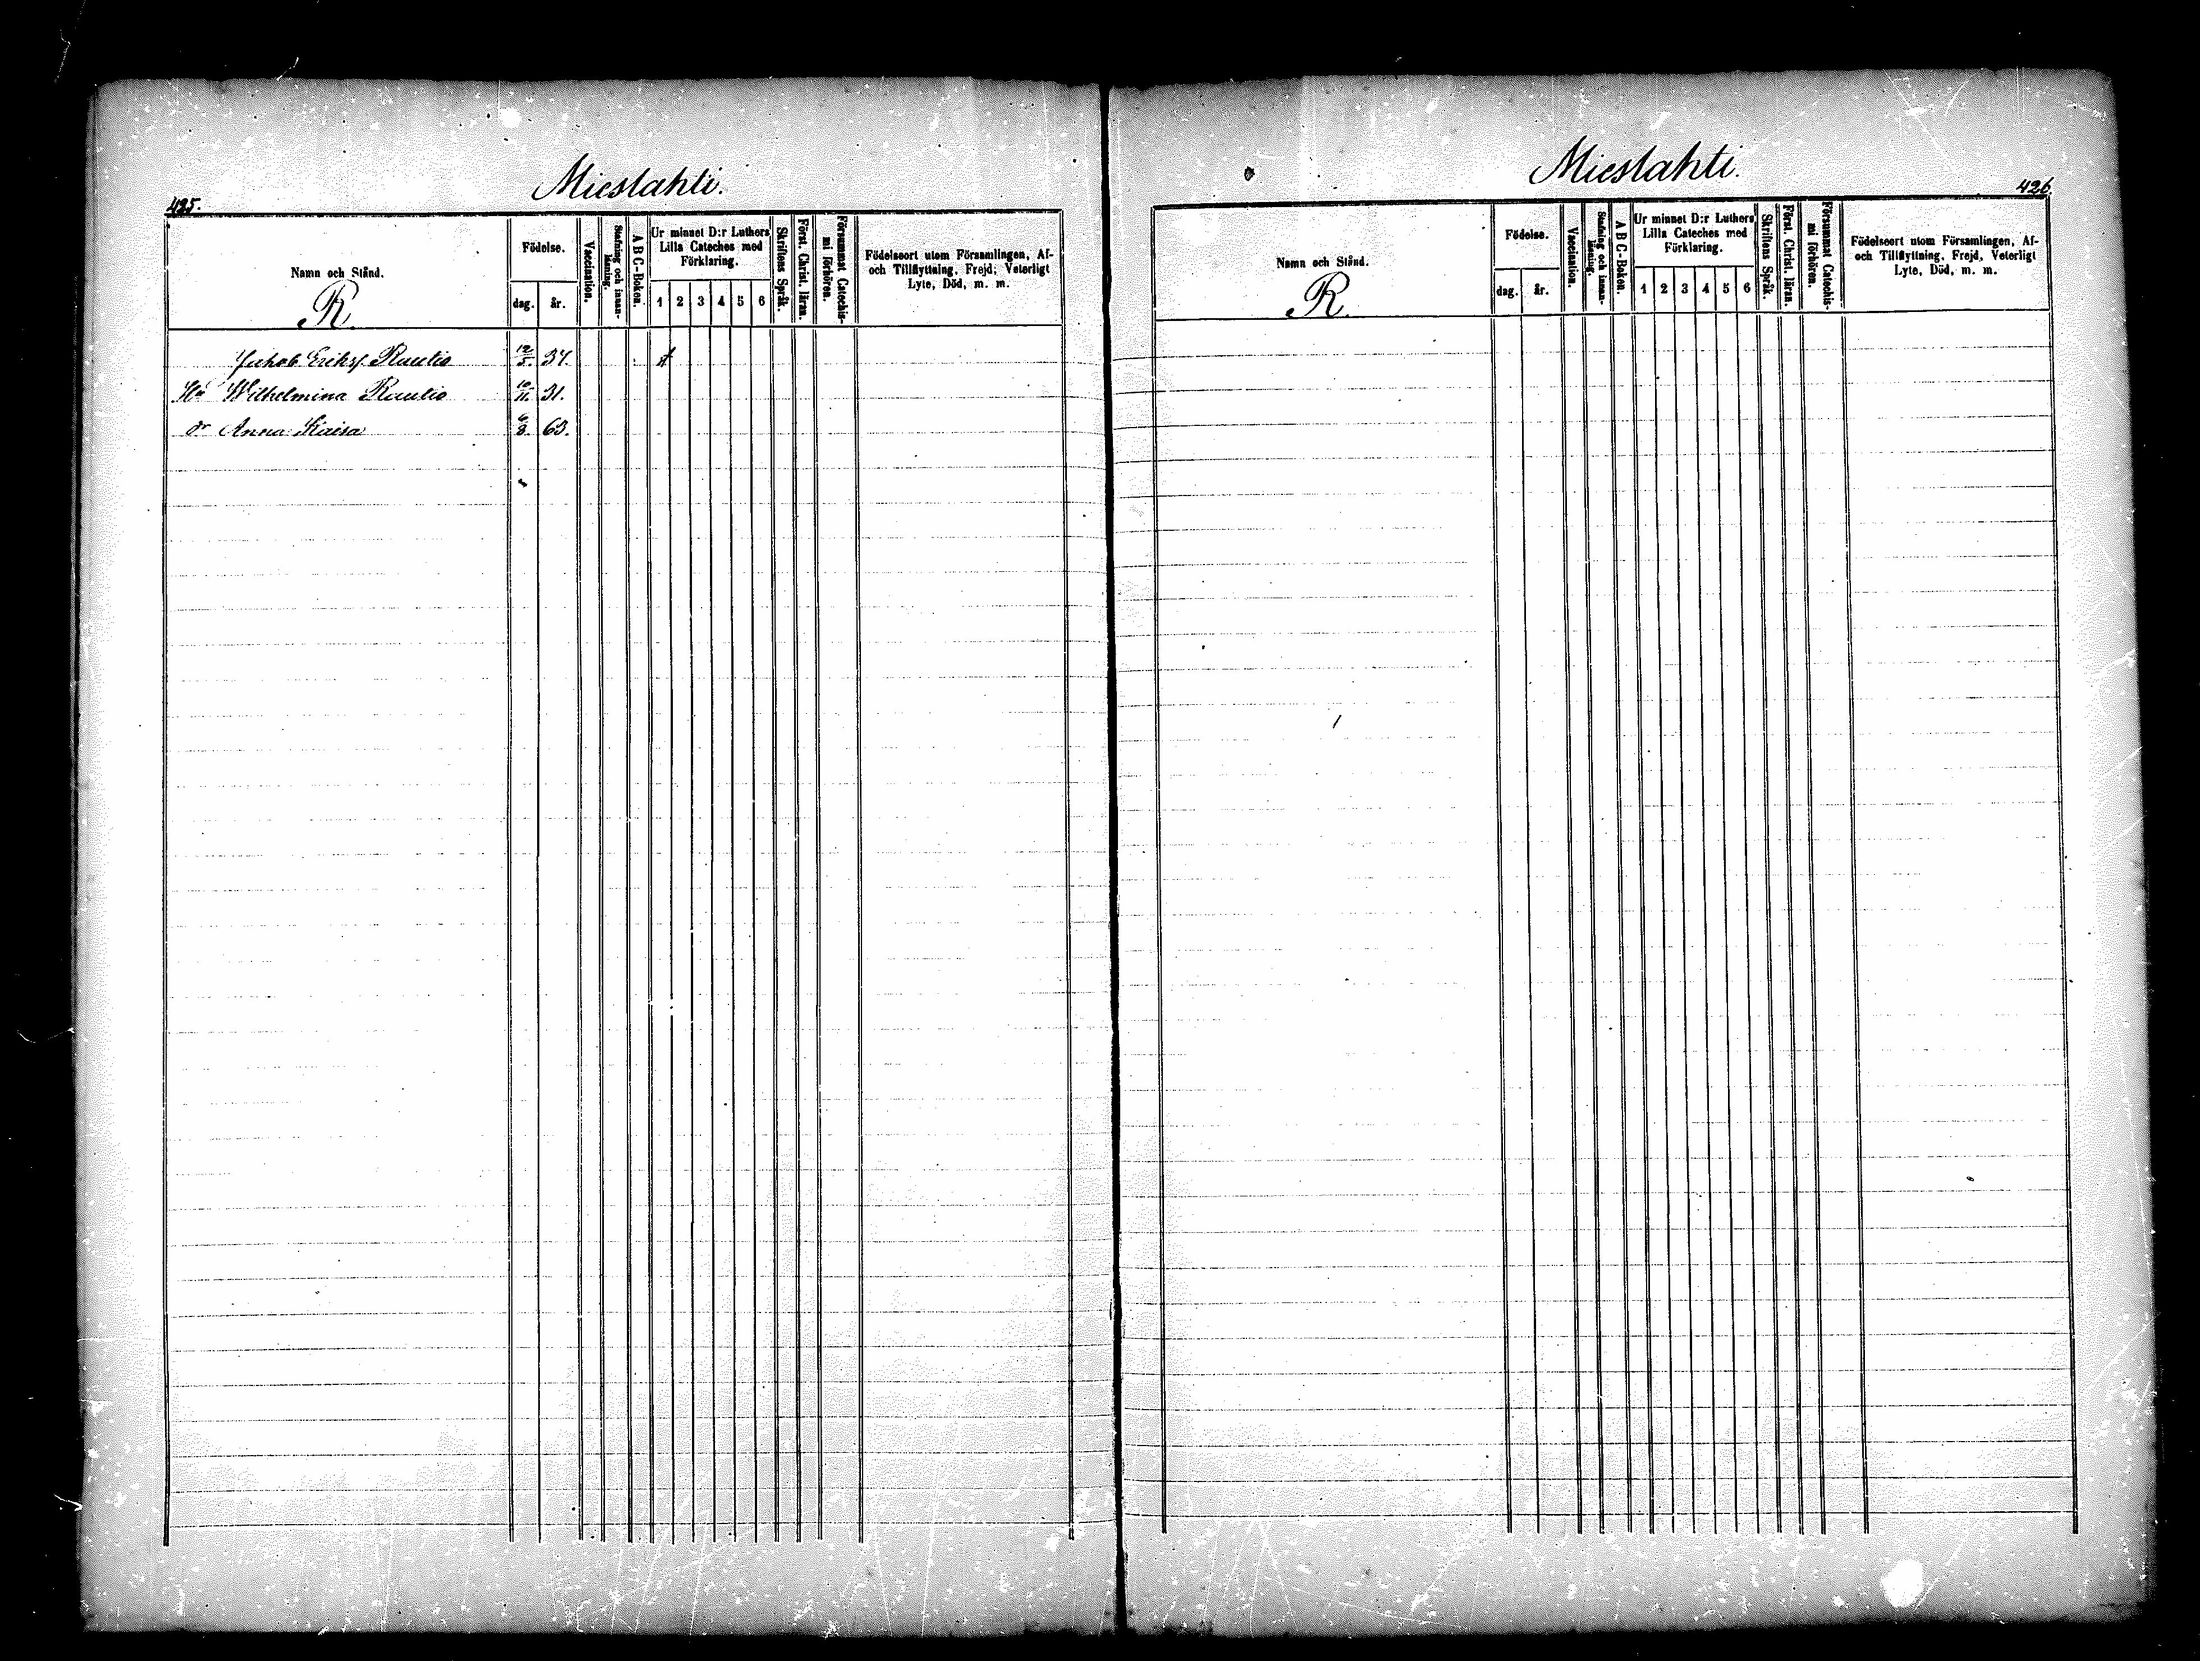 Mieslahti.
425.
Namn och Stånd.
R.
Födelse.
dag. år.
Vaccination.
Stafning och innanläsning.
A B C-Boken.
Ur minnet D:r Luthers
Lilla Cateches med
Förklaring.
1 2 3 4 5 6
Skriftens Språk.
Först. Christ. läran.
Försummat Catechis-
mi förhören.
Födelseort utom Församlingen, Af-
och Tillflyttning, Frejd, Veterligt
Lyte, Död, m. m.
Jakob Eriks. Rautio 12/5. 37.
Hu Wilhelmina Rautio 10/11. 31.
dr Anna Kaisa 6/8. 63.
Mieslahti.
426.
Namn och Stånd.
R.
Födelse.
dag. år.
Vaccination.
Stafning och innan-
läsning.
A B C-Boken.
Ur minnet D:r Luthers
Lilla Cateches med
Förklaring.
1 2 3 4 5 6
Skriftens Språk.
Först. Christ. läran.
Försummat Catechis-
mi förhören.
Födelseort utom Församlingen, Af-
och Tillflyttning, Frejd, Veterligt
Lyte, Död, m. m.